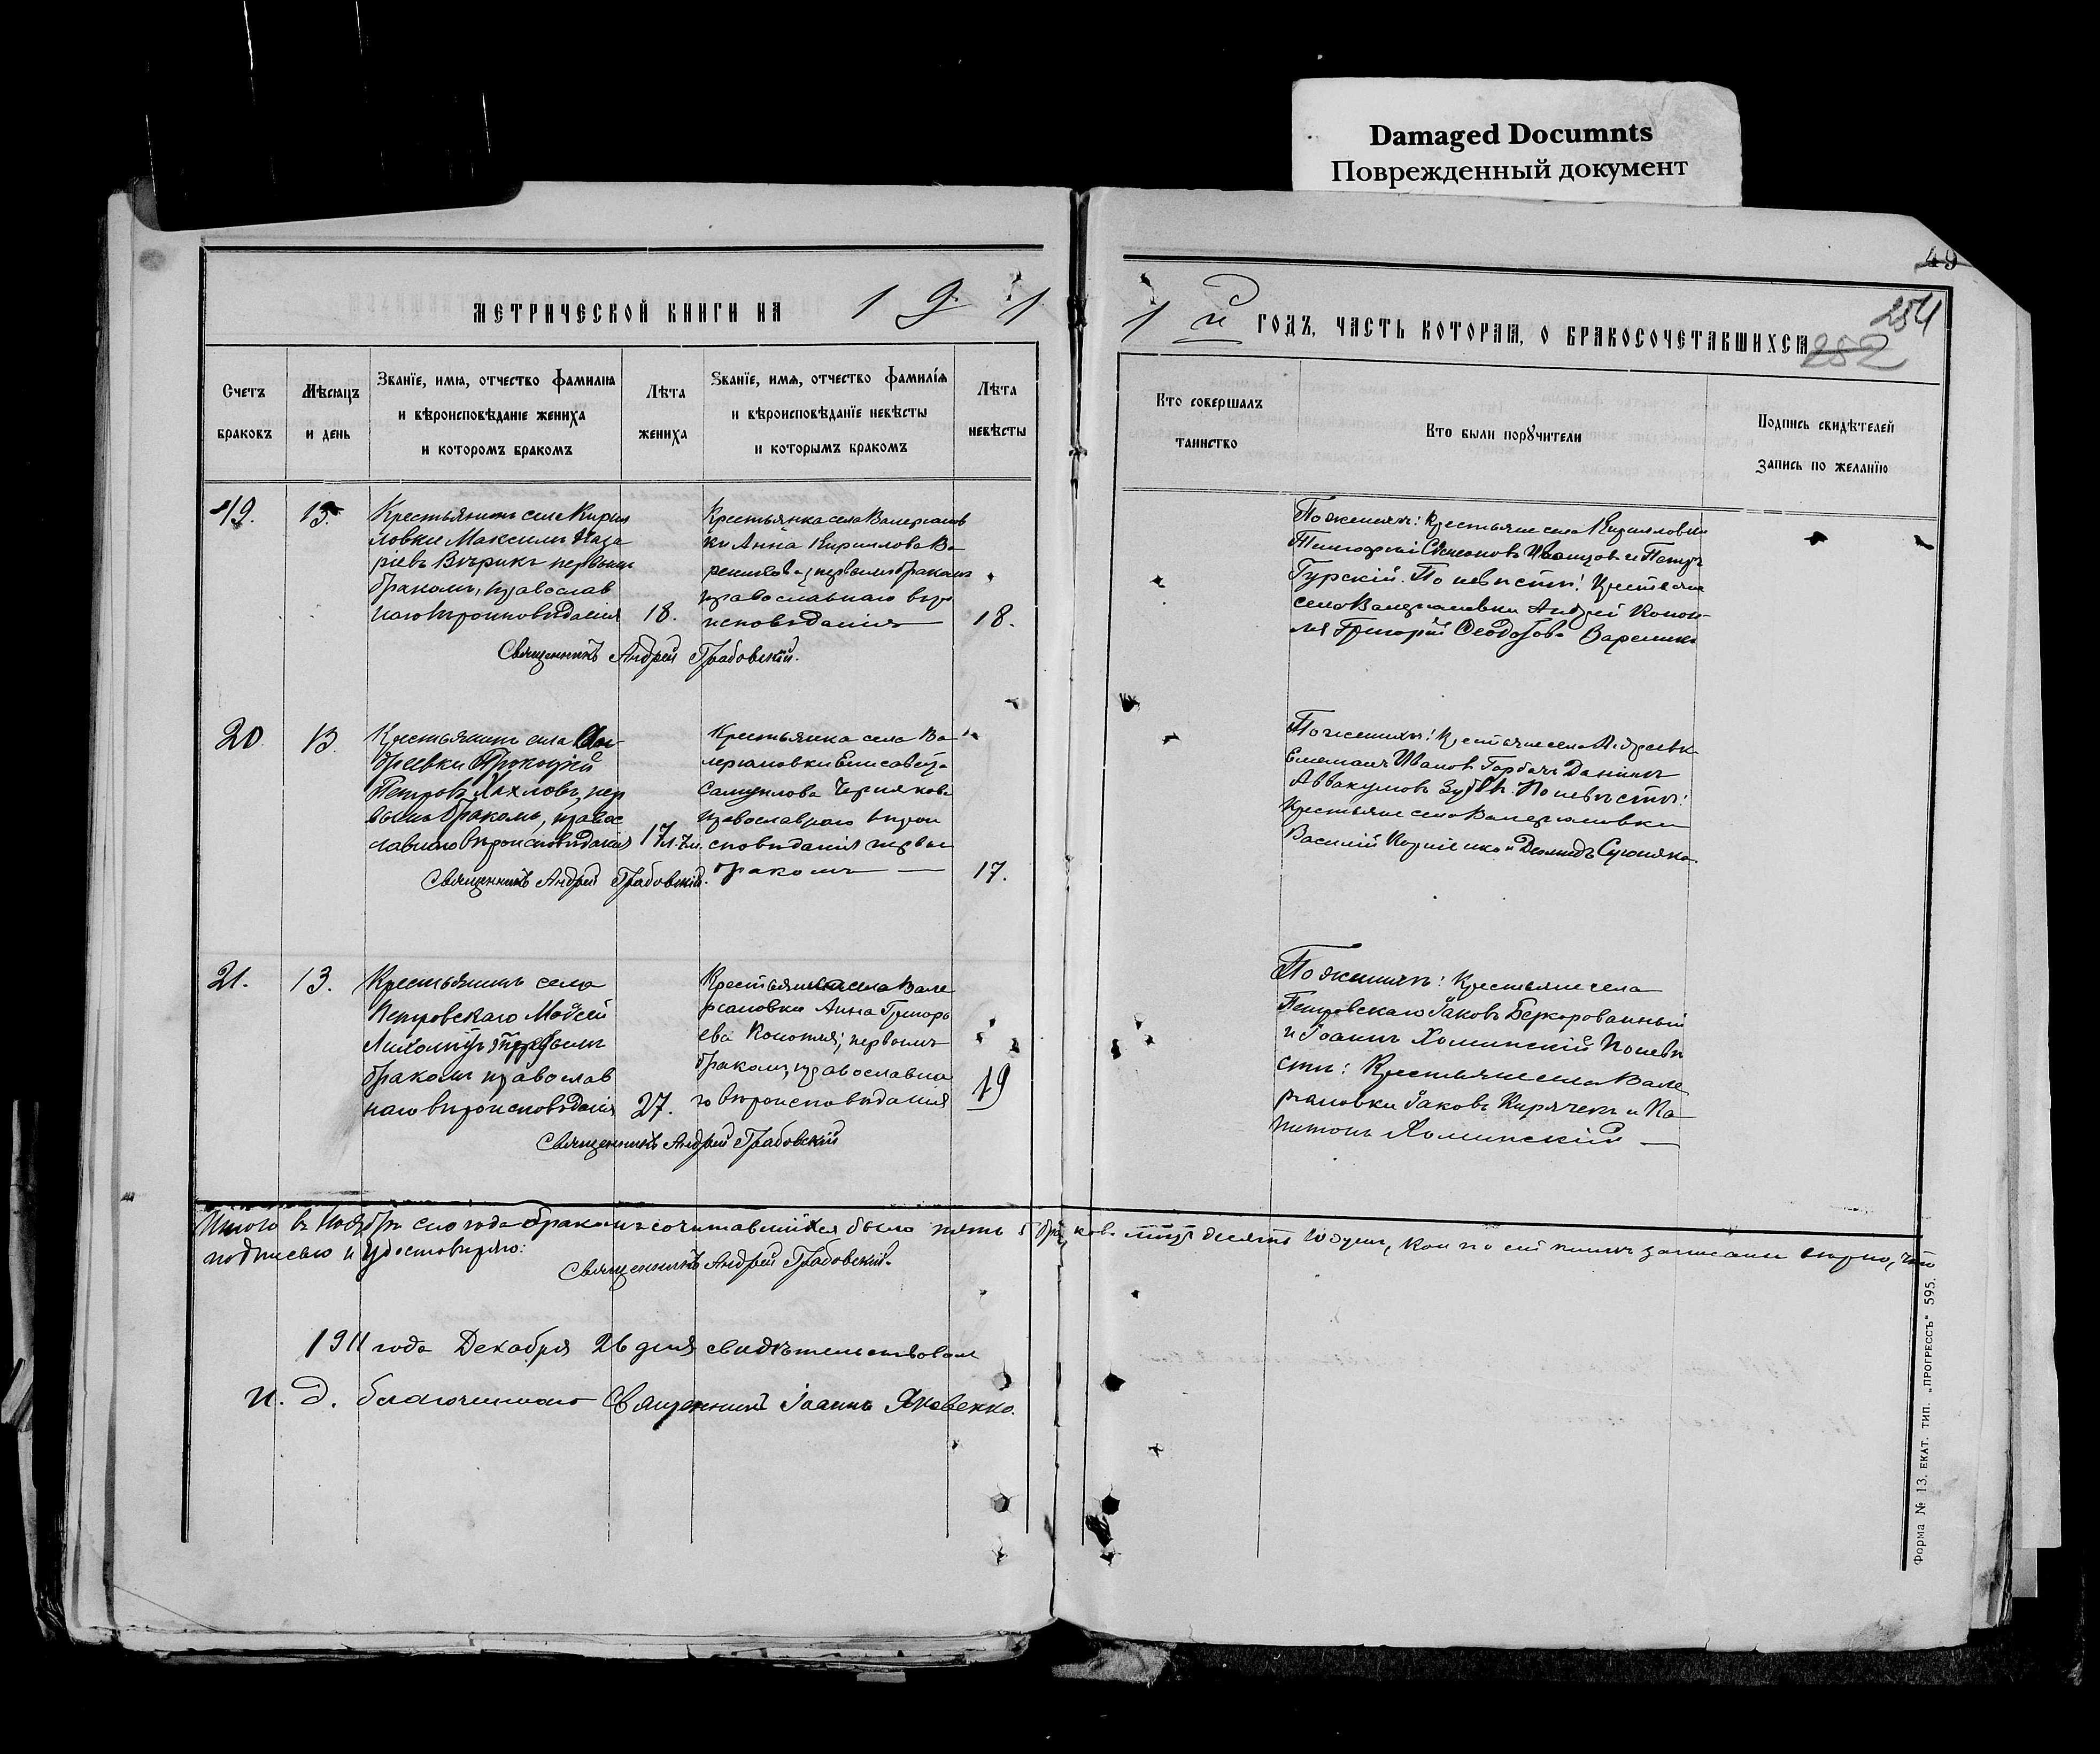 Damaged Documnts
Поврежденный документ
49
254
252
МЕТРИЧЕСКОЙ КНИГИ НА 191
1 й ГОДЪ, ЧАСТЬ КОТОРАЯ, О БРАКОСОЧЕТАВШИХСЯ
Счетъ браковъ
Мѣсяцъ и день
Званіе, имя, отчество фамилія
и вѣроисповѣданіе жениха
и которомъ бракомъ
Лѣта жениха
Званїе, имя, отчество фамилїя
и вѣроисповѣданїе невѣсты
и которымъ бракомъ
Лѣта невѣсты
Кто совершалъ таинство
Кто были порꙋчители
Подпись свидѣтелей
Запись по желанїю
19.
13.
Крестьянинъ села Кири
ловки Максимъ Наза
ріевъ первымъ
бракомъ, православ
наго вѣроисповѣданія
18.
Крестьянка села Валериянов
ки Анна Кириллова Ва
первымъ бракомъ
православнаго вѣро
исповѣданія
18.
Священникъ Андрей Грабовскій.
По женихѣ: Крестьяне села Кирилловки
Симеоновъ и Петръ
Гурскій. По невѣстѣ: Крестьяне
села Валериановки Андрей Коноп-
ля Григорій Ѳеодосовъ
20
13.
Крестьянинъ села Ан
дреевки Прокопій
Петровъ Хахловъ, пер
вымъ бракомъ, правос
лавнаго вѣроисповѣданія
17 л. 7 м.
Крестьянка села Ва
лериановки Елисавета
Самуилова Чернякова
православнаго вѣрои
сповѣданія первы
бракомъ —
17.
Священникъ Андрей Грабовскій.
По женихѣ: Крестьяне села Андреевки
Емельянъ Ивановъ Горбачъ Даніилъ
Аввакумовъ По невѣстѣ:
Крестьяне села Валериановки
Василій и Демидъ
21.
13.
Крестьянинъ села
Петровскаго Моѵсей
первымъ
бракомъ православ
наго вѣроисповѣданія
27.
Крестьянка села Вале
риановки Анна Григорь
ева Конопля; первымъ
бракомъ, православна
го вѣроисповѣданія
19
Священникъ Андрей Грабовскій
По женихѣ: Крестьяне села
Петровскаго Іаковъ
и Іоаннъ Хоминскій По невѣ
стѣ: Крестьяне села Вале
риановки Іаковъ Кирячекъ и Ка
питонъ Хоминскій —
Итого въ Ноябрѣ сего года бракомъ сочитавшихся было пять 5 бра ковъ десять 10 душъ, кои по сей книгѣ записаны вѣрно, что
подписью и удостовѣряю:
Священникъ Андрей Грабовскій.
1911 года Декабря 26 дня свидѣтельствовалъ
и. д. благочиннаго Священникъ Іоаннъ Яковенко.
Форма № 13. ЕКАТ. ТИП. „ПРОГРЕССЪ" 595.